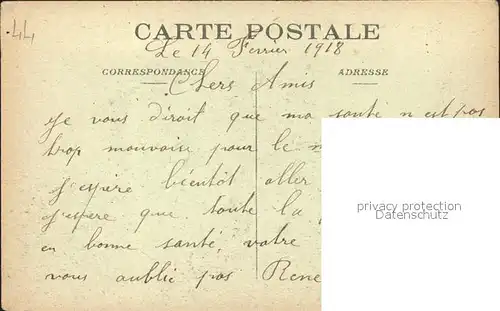 44
CARTE POSTALE
Le 14 Fevrier 1918
CORRESPONDANCE ADRESSE
Chers Amis
Je vous dirait que ma santé n est pas
trop mauvaise pour le
J'espère bientôt aller
J'espere que toute la
en bonne santé, votre
vous oublie pas Rene
privacy protection
Datenschutz